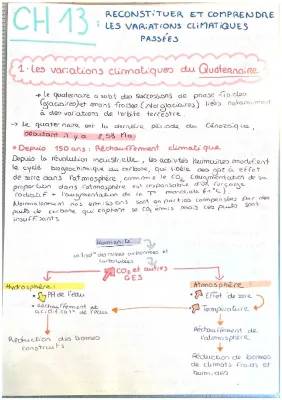 CH 13 : RECONSTITUER ET COMPRENDRE
LES VARIATIONS CLIMATIQUES
PASSÉES
1. Les variations climatiques du Quaternaire
→ Le quaternaire a subit des successions de phase froides
(glaciaires) et moins froides (interglaciaires) liées notamment
à des variations de l'orbite terrestre.
→ Le quaternaire est la dernière période du Cénozoïque,
débutant il y a 2,58 Ma
• Depuis 150 ans : Réchauffement climatique
Depuis la révolution industrielle, les activités humaines modifient
le cycle biogéochimique du carbone, qui libère des gaz à effet
de serre dans l'atmosphère, comme le CO2 (l'augmentation de sa
proportion dans l'atmosphère est responsable d'un forçage
radiatif = l'augmentation de la T° mondiale
Normalement nos émissions sont en parties compensées par des
puits de carbone qui captent ce CO2 émis mais ces puits sont
insuffisants
Humanité
roches carbonées et
CO2 et autres
GES
Hydrosphère :
PH de l'eau
réchauffement et
acidif° de l'eau
Réduction des
Atmosphère :
Effet de serre
Température
Réchauffement de
l'atmosphère
Réduction de
de climats froids et
humides